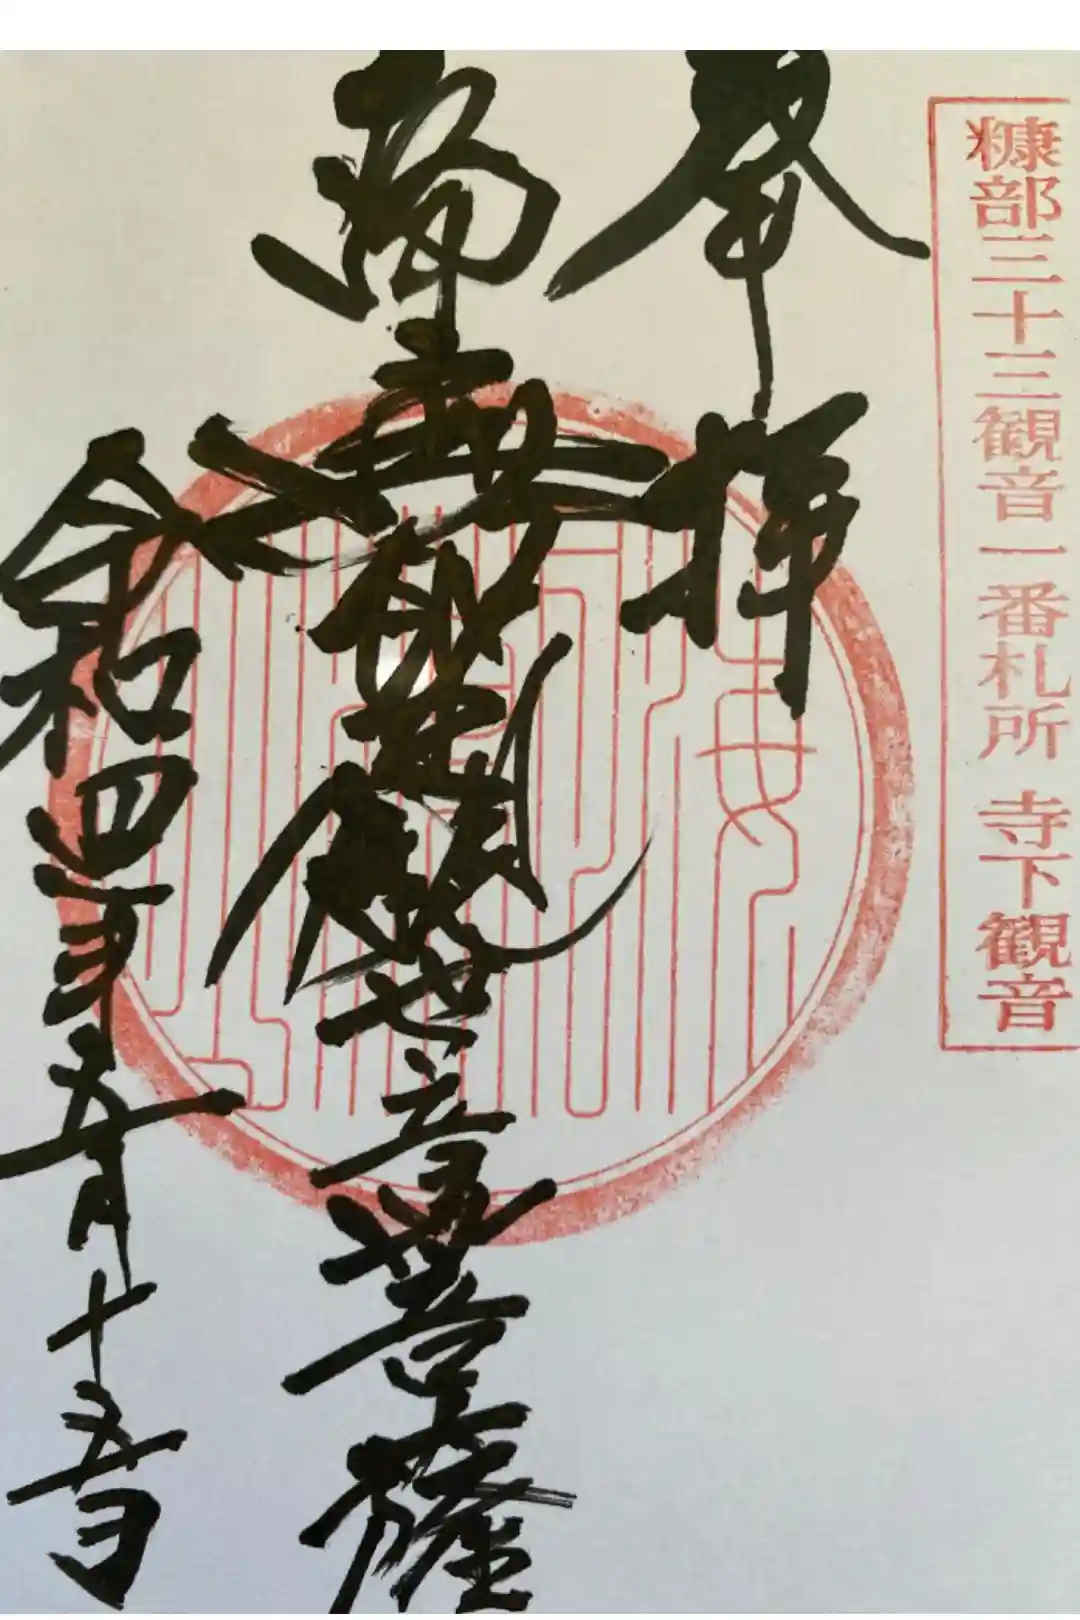 糠部三十三観音一番札所 寺下観音
奉拝
南無
観世音菩薩
令和四年五月十五日